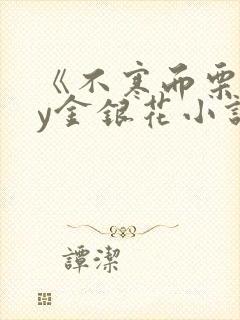 《不寒而栗
y金银花小說
譚潔